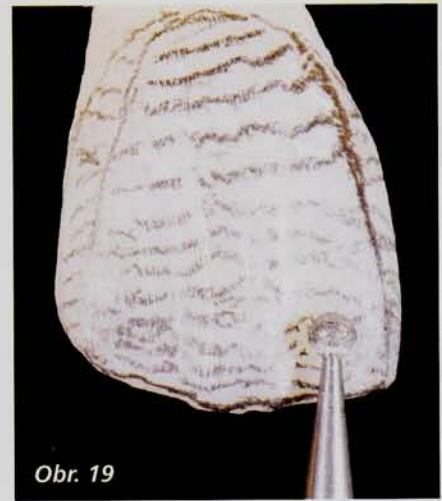 Obr. 19